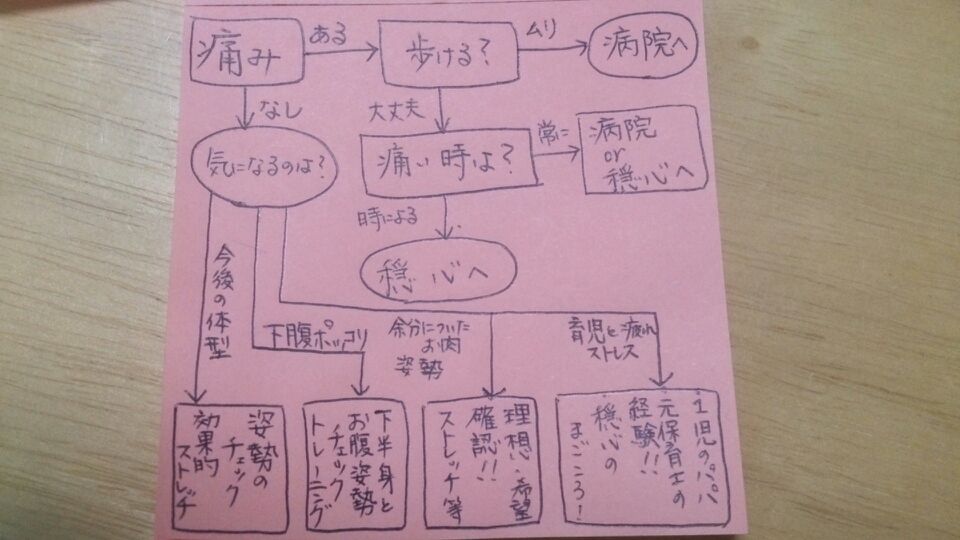 痛み
ある
歩ける?
ムリ
病院へ
なし
大丈夫
気になるのは?
痛い時は?
常に
病院
or
穏心へ
時による
穏心へ
今後の体型
下腹ポッコリ
余分についた
お肉
姿勢
育児と疲れ
ストレス
姿勢の
チェック
効果的
ストレッチ
下半身と
お腹姿勢
チェック
トレーニング
理想・希望
確認!!
ストレッチ等
1児のパパ
元保育士の
経験!!
穏心の
まごころ!